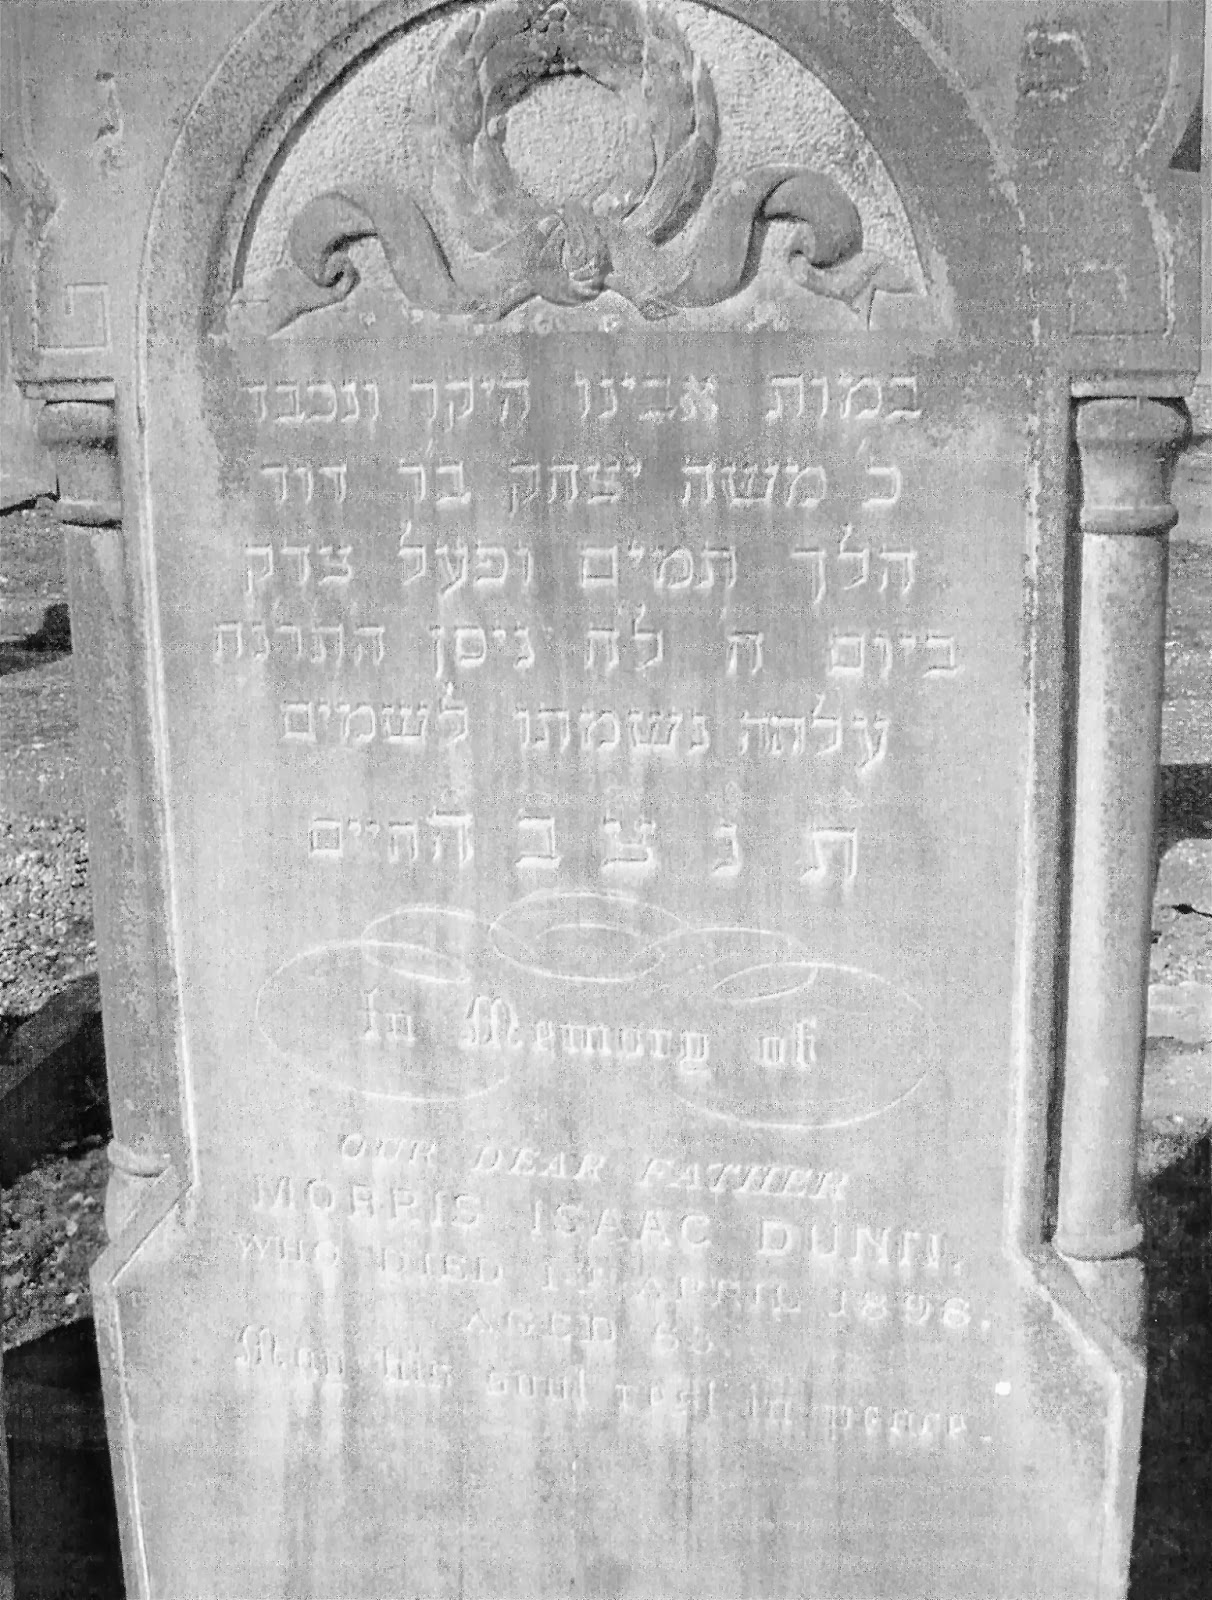 פ נ
במות אבינו היקר ונכבד
כ משה יצחק בר דוד
הלך תמים ופעל צדק
ביום ה לח ניסן התרנח
עלתה נשמתו לשמים
ת נ צ ב ה החיים
In Memory of
OUR DEAR FATHER
MORRIS ISAAC DUNN.
WHO DIED APRIL 1898.
AGED
May his soul rest in peace.